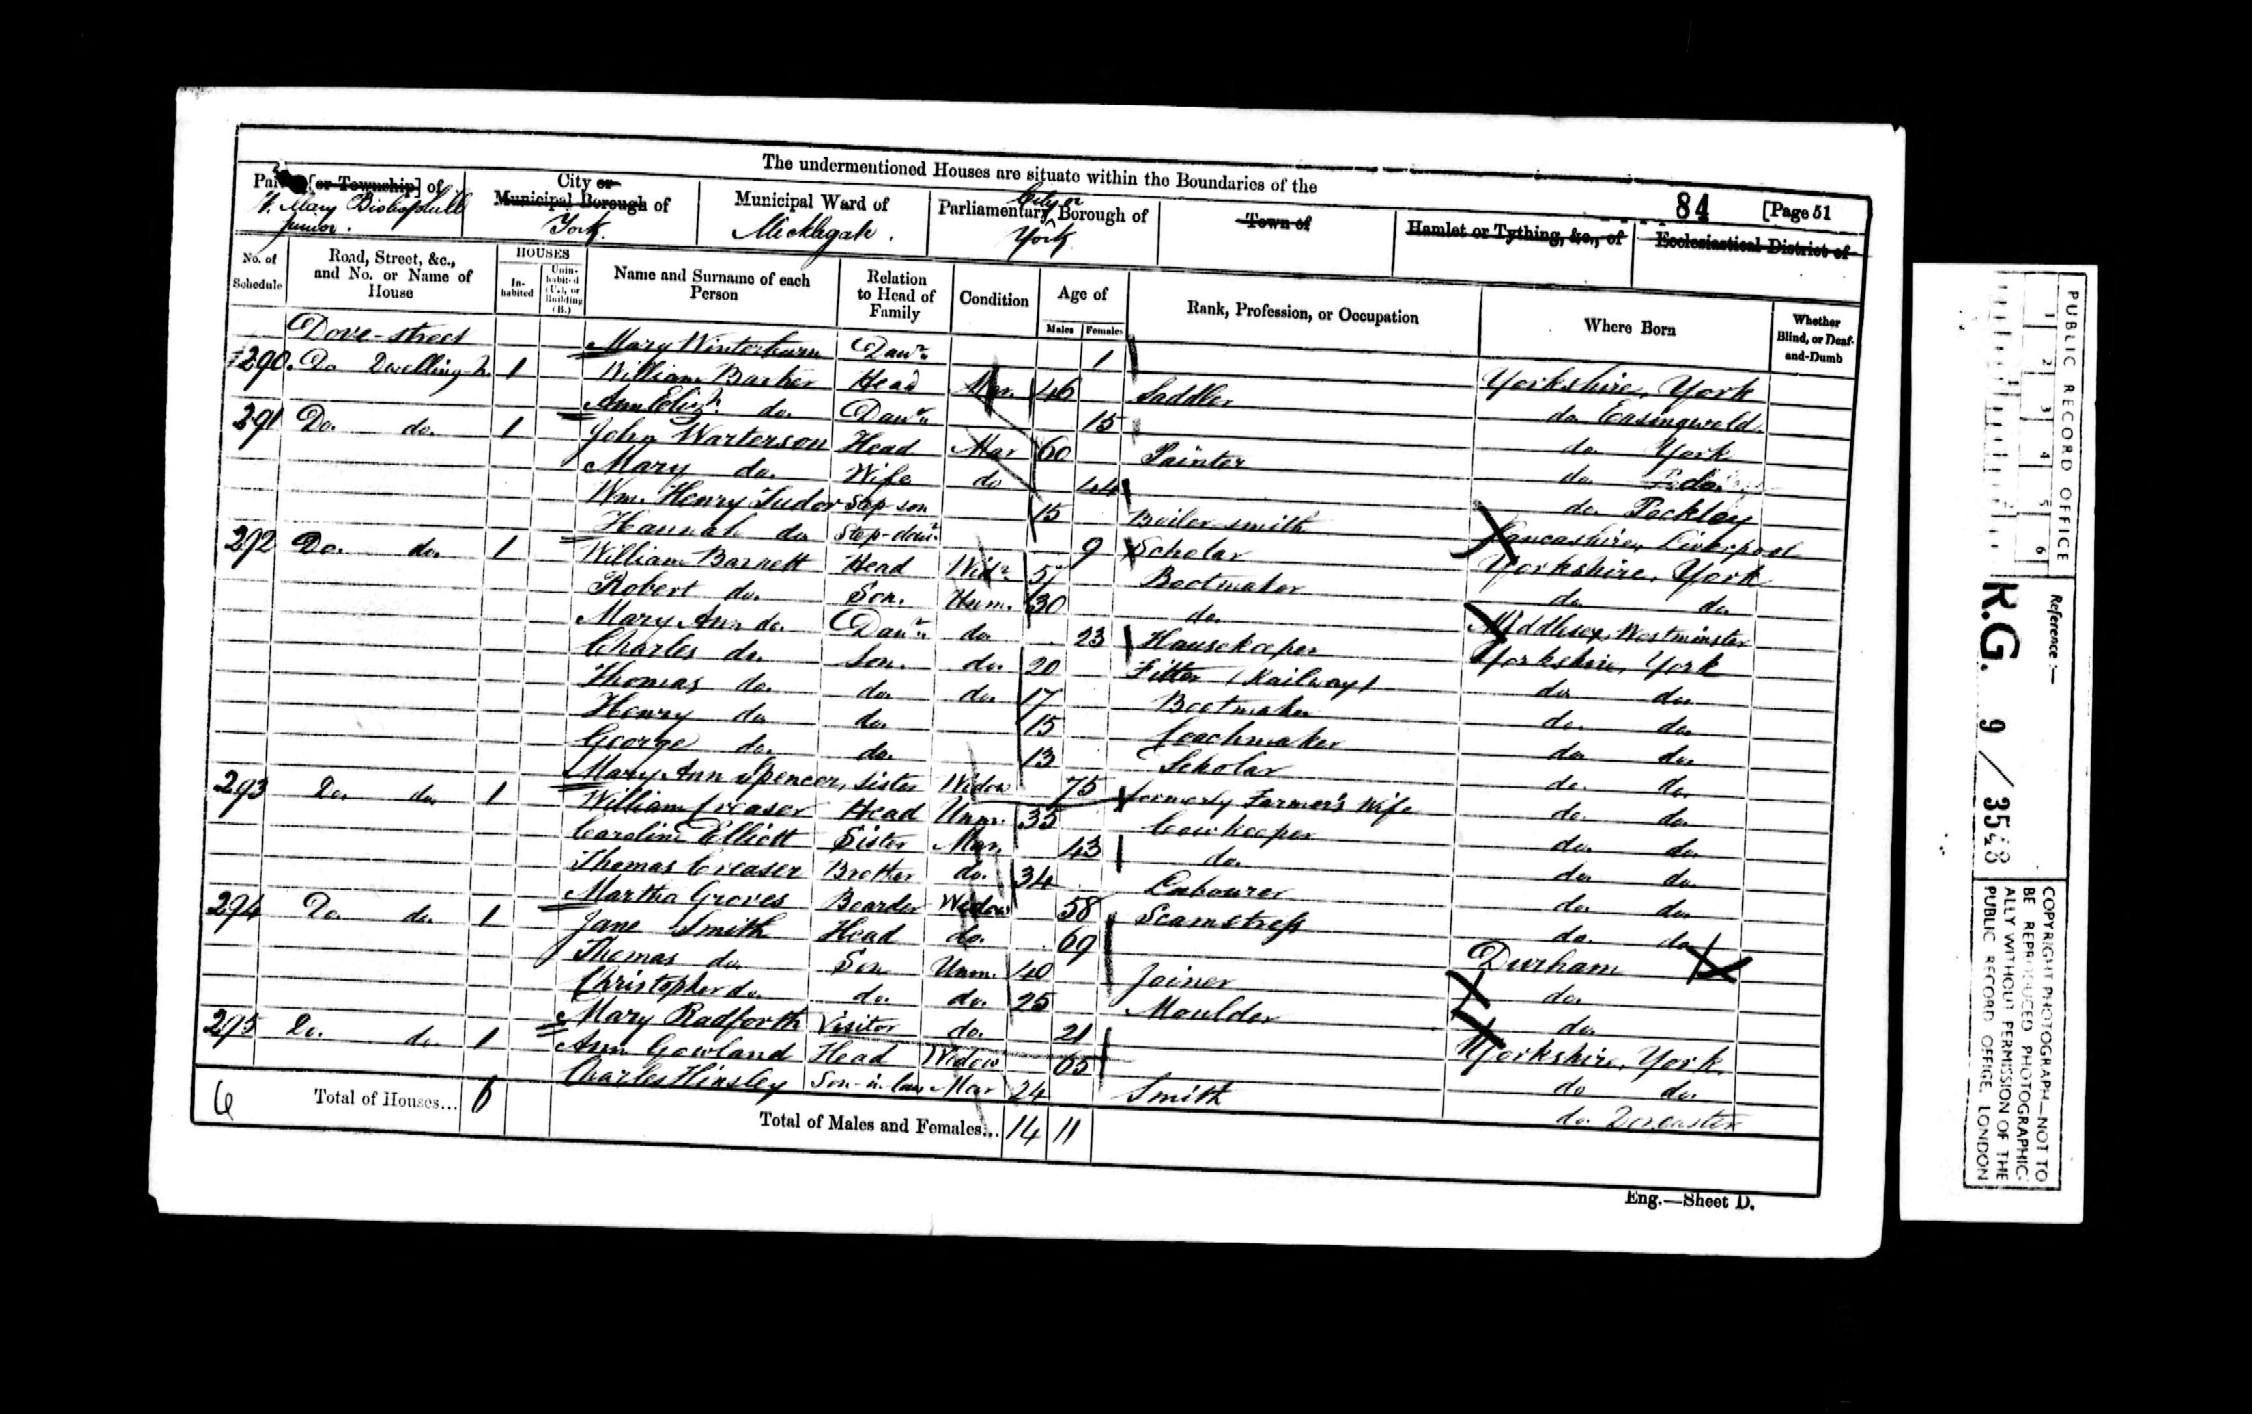 The undermentioned Houses are situate within the Boundaries of the
84 [Page 51
[or Township] of St. Mary Bishophill Junior.
City or Municipal Borough of York.
Municipal Ward of Micklegate.
Parliamentary City or Borough of York
Town of
Hamlet or Tything, &c., of
Ecclesiastical District of
No. of Schedule
Road, Street, &c., and No. or Name of House
HOUSES
In-habited
Unin-habited (U.), or Building (B.)
Name and Surname of each Person
Relation to Head of Family
Condition
Age of
Males Females
Rank, Profession, or Occupation
Where Born
Whether Blind, or Deaf-and-Dumb
Dove-street Mary Winterburn Daur. 1 Yorkshire, York
290. Do Dwelling h. 1 William Barker Head Mar. 46 Saddler do. Easingwold
Ann Elizh. do. Daur. 15 do. York
291 Do. do. 1 John Warterson Head Mar 60 Painter do.
Mary do. Wife do 44 do. Pockley
Wm. Henry Tudor Step son 15 Boiler smith Lancashire, Liverpool
Hannah do Step-daur. 9 Scholar Yorkshire, York
292 Do. do. 1 William Barnett Head Widr. 57 Bootmaker do do.
Robert do. Son. Unm. 30 do. Middlesex, Westminster
Mary Ann do. Daur. do 23 Housekeeper Yorkshire, York
Charles do. Son. do. 20 Fitter (Railway) do do.
Thomas do. do. do. 17 Bootmaker do. do.
Henry do do. 15 Coachmaker do do.
George do. do. 13 Scholar do. do.
Mary Ann Spencer, Sister Widow 75 formerly Farmer's Wife do. do.
293 Do. do. 1 William Creaser Head Unm. 35 Cowkeeper do. do.
Caroline Elliott Sister Mar. 43 do. do. do.
Thomas Creaser Brother do. 34 Labourer do. do.
Martha Groves Boarder Widow 58 Seamstress do. do
294 Do. do. 1 Jane Smith Head do. 69 Durham
Thomas do. Son Unm. 40 Joiner do.
Christopher do. do. do. 25 Moulder do.
Mary Radforth Visitor do. 21 Yorkshire, York.
295 Do. do. 1 Ann Gowland Head Widow 65 do do.
Charles Hinsley Son-in-law Mar 24 Smith do. Doncaster
6 Total of Houses... 6 Total of Males and Females... 14 11
Eng.—Sheet D.
PUBLIC RECORD OFFICE
1 2 3 4 5 6
Reference:—
R.G. 9 / 3548
COPYRIGHT PHOTOGRAPH—NOT TO
BE REPRODUCED PHOTOGRAPHIC-
ALLY WITHOUT PERMISSION OF THE
PUBLIC RECORD OFFICE, LONDON